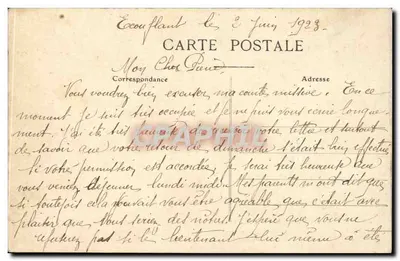 Ecouflant le 2 Juin 1923.
CARTE POSTALE
Mon Cher Pierre
Correspondance Adresse
Vous voudrez bien excuser ma courte missive. En ce
moment je suis très occupée et je ne puis vous écrire longue-
ment. J'ai été très de votre lettre et surtout
de savoir que votre de dimanche s'était bien effectué
Si votre permission est accordée, je serai très heureuse que
vous veniez déjeuner lundi midi. Mes parents m'ont dit que
si toutefois cela pouvait vous être agréable que c'était avec
plaisir que vous seriez des nôtres. J'espère que vous ne
pas si le lieutenant lui même a été